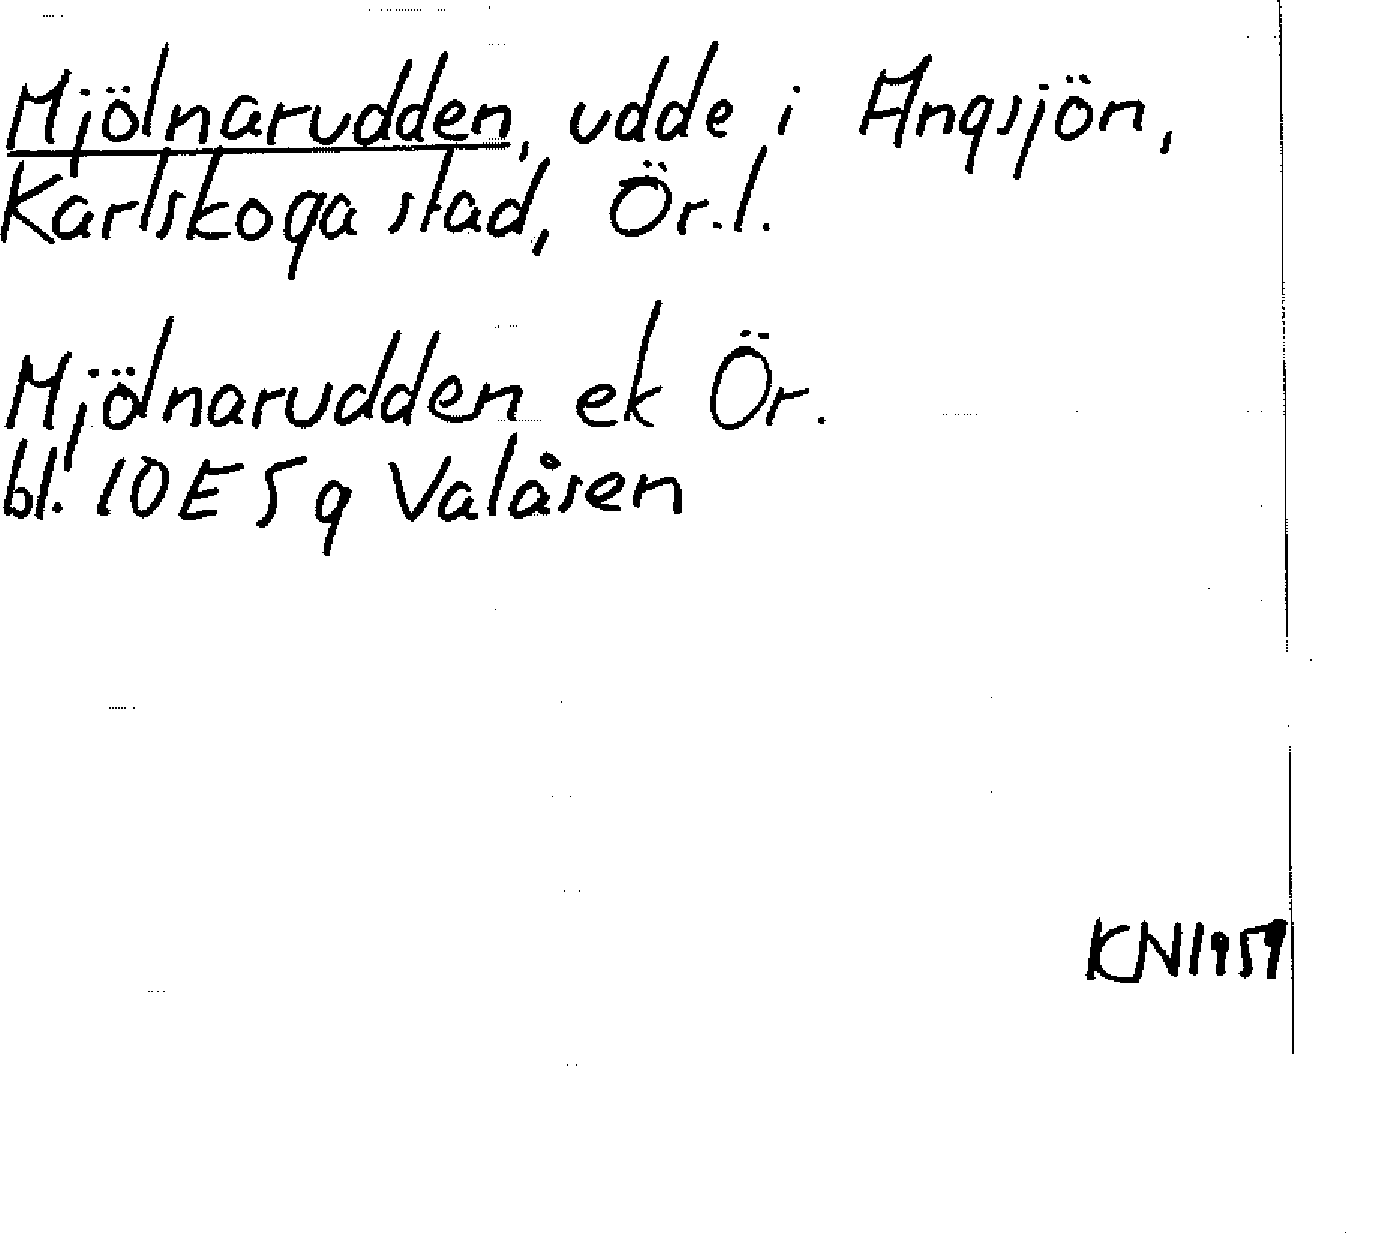 Mjölnarudden, udde i Angsjön,
Karlskoga stad, Ör.l.
Mjölnarudden ek Ör.
bl. 10E5g Valåsen
KN1959